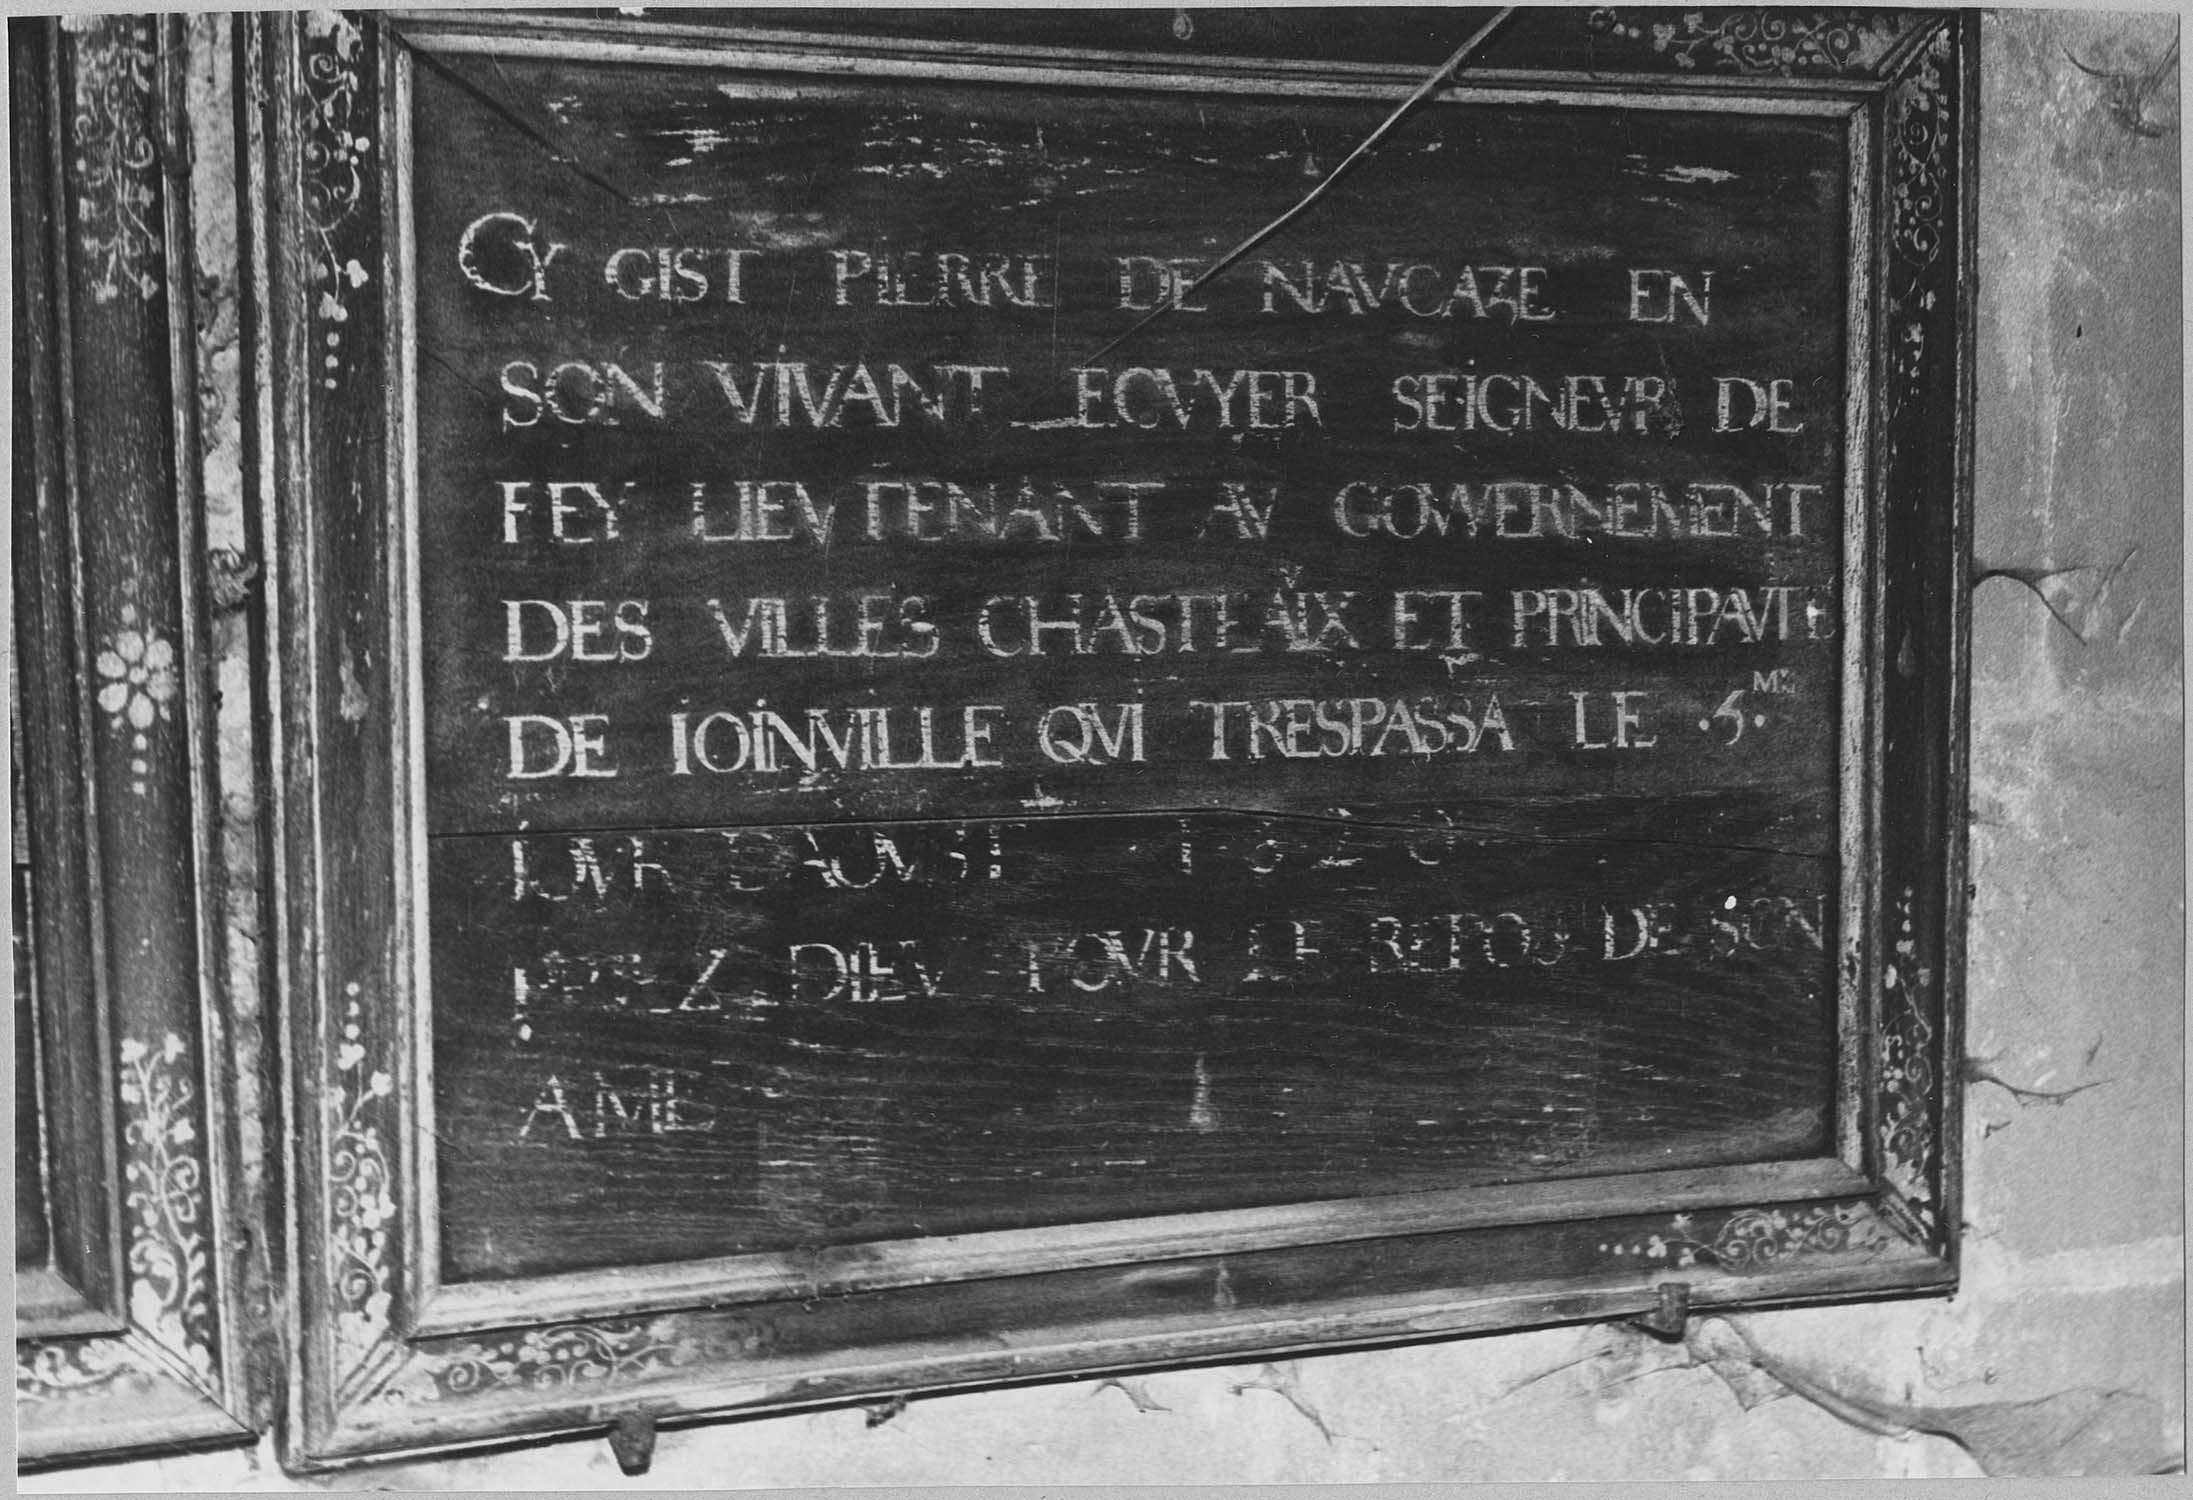 CY GIST PIERRE DE NAVCAZE EN
SON VIVANT ECVYER SEIGNEVR DE
FEY LIEVTENANT AV GOWERNEMENT
DES VILLES CHASTEAIX ET PRINCIPAVTE
DE IOINVILLE QVI TRESPASSA LE .5.
IOVR DAOVST
PRIEZ DIEV POVR LE REPOS DE SON
AME